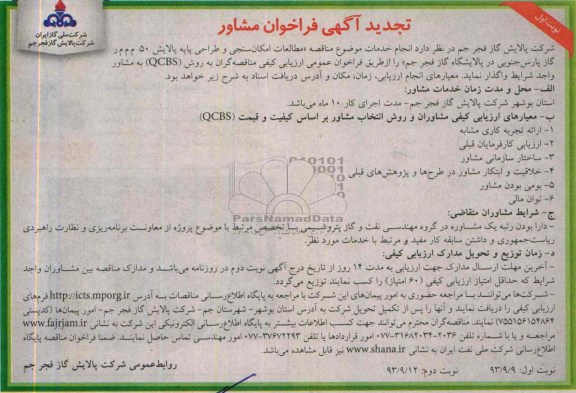 نوبت اول
تجدید آگهی فراخوان مشاور
شرکت ملی گاز ایران
شرکت پالایش گاز فجر جم
شرکت پالایش گاز فجر جم در نظر دارد انجام خدمات موضوع مناقصه «مطالعات امکان‌سنجی و طراحی پایه پالایش ۵۰ م م م ر
گاز پارس‌جنوبی در پالایشگاه گاز فجر جم» را ازطریق فراخوان عمومی ارزیابی کیفی مناقصه‌گران به روش (QCBS) به مشاور
واجد شرایط واگذار نماید. معیارهای انجام ارزیابی، زمان، مکان و آدرس دریافت اسناد به شرح زیر خواهد بود.
الف- محل و مدت زمان خدمات مشاور:
استان بوشهر شرکت پالایش گاز فجر جم- مدت اجرای کار ۱۰ ماه می‌باشد.
ب- معیارهای ارزیابی کیفی مشاوران و روش انتخاب مشاور بر اساس کیفیت و قیمت (QCBS)
۱- ارائه تجربه کاری مشابه
۲- ارزیابی کارفرمایان قبلی
۳- ساختار سازمانی مشاور
۴- خلاقیت و ابتکار مشاور در طرح‌ها و پژوهش‌های قبلی
۵- بومی بودن مشاور
۶- توان مالی
ParsNamadData
ج- شرایط مشاوران متقاضی:
- دارا بودن رتبه یک مشاوره در گروه مهندسی نفت و گاز پتروشیمی با تخصص مرتبط با موضوع پروژه از معاونت برنامه‌ریزی و نظارت راهبردی
ریاست‌جمهوری و داشتن سابقه کار مفید و مرتبط با خدمات مورد نظر.
د- زمان توزیع و تحویل مدارک ارزیابی کیفی:
- آخرین مهلت ارسال مدارک جهت ارزیابی به مدت ۱۴ روز از تاریخ درج آگهی نوبت دوم در روزنامه می‌باشد و مدارک مناقصه بین مشاوران واجد
شرایط که حداقل امتیاز ارزیابی کیفی (۶۰ امتیاز) را کسب نمایند توزیع می‌گردد.
- شرکت‌ها می‌توانند با مراجعه حضوری به امور پیمان‌های این شرکت یا مراجعه به پایگاه اطلاع‌رسانی مناقصات به آدرس http://icts.mporg.ir فرم‌های
ارزیابی کیفی را دریافت نمایند و آنها را پس از تکمیل تحویل شرکت به آدرس استان بوشهر- شهرستان جم- شرکت پالایش گاز فجر جم- امور پیمان‌ها (کدپستی
۷۵۵۱۵۶۱۵۲۸۶۴) نمایند. مناقصه‌گران محترم می‌توانند جهت کسب اطلاعات بیشتر به پایگاه اطلاع‌رسانی الکترونیکی این شرکت به نشانی www.fajrjam.ir
مراجعه و یا با شماره تلفن ۲۰۳۶-۳۱۶۸۲۰۳۴-۰۷۷ امور قراردادها یا تلفن ۳۷۶۷۲۲۹۳-۰۷۷ امور مهندسی تماس حاصل نمایند. ضمنا فراخوان مناقصه پایگاه
اطلاع‌رسانی شرکت ملی نفت ایران به نشانی www.shana.ir نیز قابل مشاهده می‌باشد.
نوبت اول: ۹۳/۹/۹ نوبت دوم: ۹۳/۹/۱۲ روابط عمومی شرکت پالایش گاز فجر جم